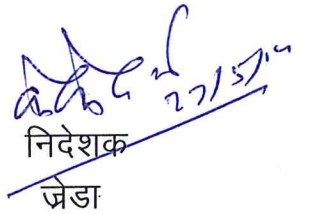 27/5/14
निदेशक
जेडा